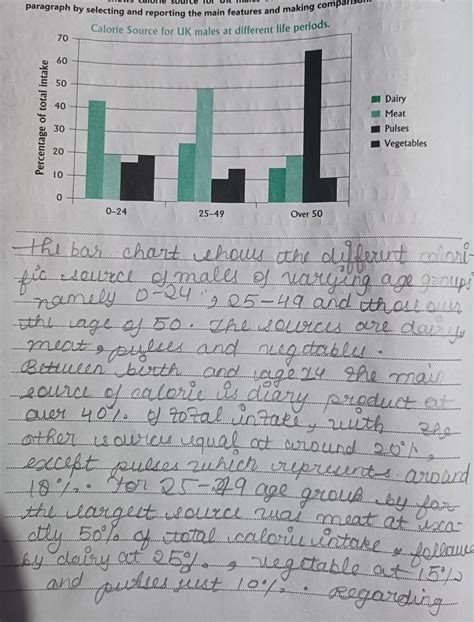 paragraph by selecting and reporting the main features and making comparison
Calorie Source for UK males at different life periods.
Percentage of total intake
70
60
50
40
30
20
10
0
0-24
25-49
Over 50
Dairy
Meat
Pulses
Vegetables
The bar chart shows the different calori-
fic source of males of varying age groups
namely 0-24, 25-49 and those over
the age of 50. The sources are dairy,
meat, pulses and
Between birth and age 24 the main
source of calorie is diary product at
over 40% of total intake, with the
other sources equal at around 20%,
except pulses which represents around
18%. For 25-49 age group by far
the largest source was meat at exa-
ctly 50% of total calorie intake, follow
by dairy at 25%, vegetable at 15%
and pulses just 10%. Regarding